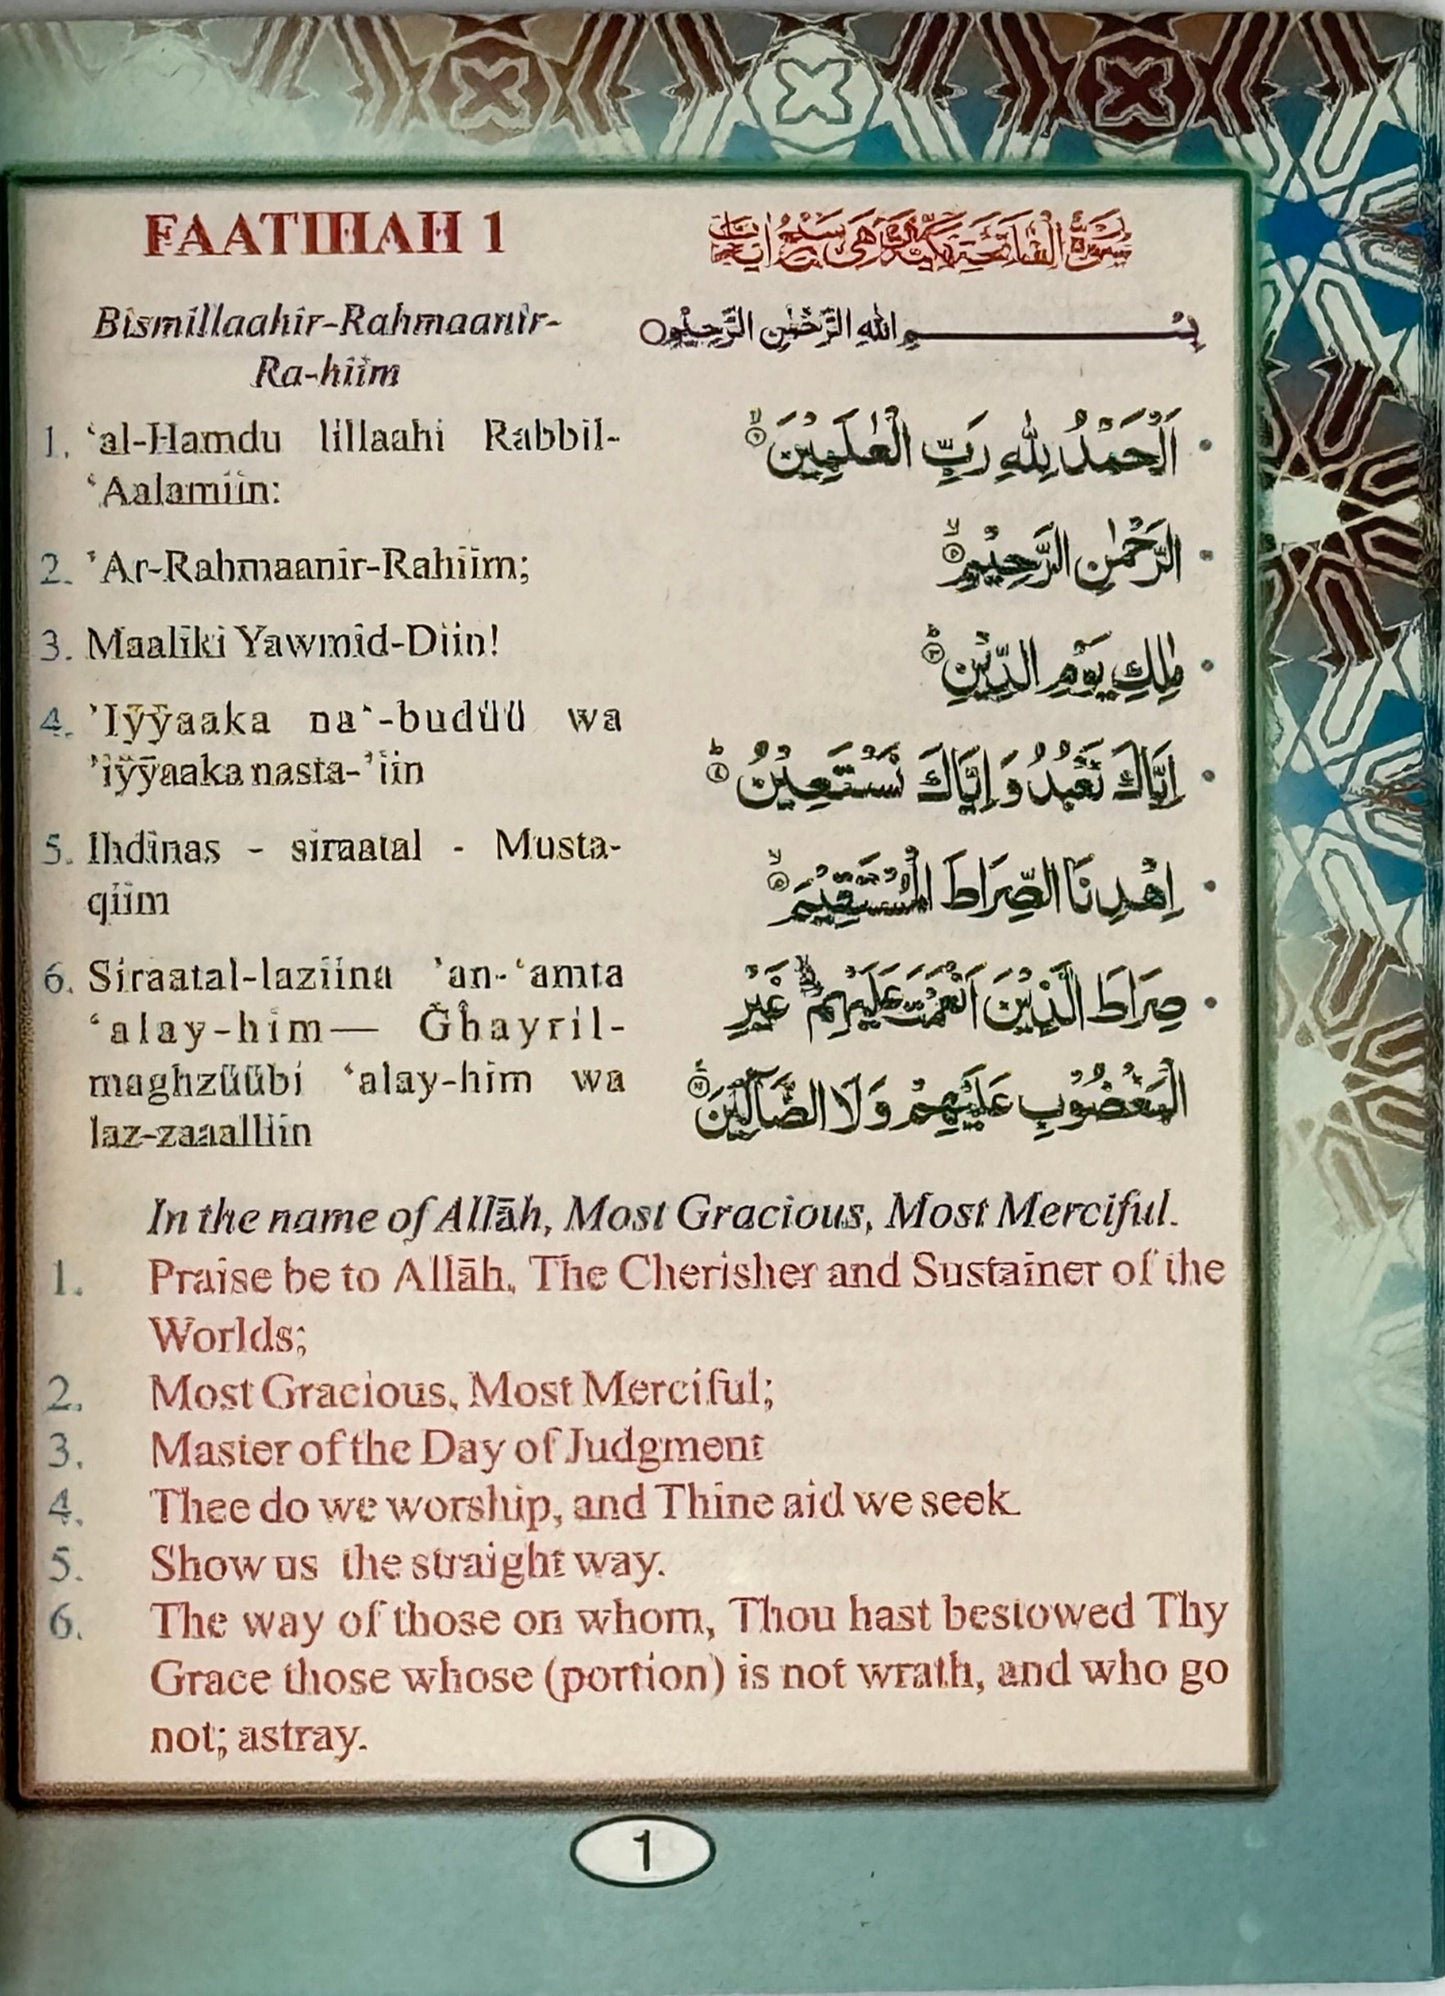 FAATIHAH 1
سورة الفاتحة مكية وهي سبع ايات
Bismillaahir-Rahmaanir-
Ra-hiim
بِسْــــــــمِ اللهِ الرَّحْمٰنِ الرَّحِيْمِ
1. ‘al-Hamdu lillaahi Rabbil-
‘Aalamiin:
اَلْحَمْدُ لِلّٰهِ رَبِّ الْعٰلَمِيْنَ ۙ
2. ’Ar-Rahmaanir-Rahiim;
الرَّحْمٰنِ الرَّحِيْمِ ۙ
3. Maaliki Yawmid-Diin!
مٰلِكِ يَوْمِ الدِّيْنِ ؕ
4. ’Iÿÿaaka na‘-budüü wa
’iÿÿaaka nasta-’iin
اِيَّاكَ نَعْبُدُ وَ اِيَّاكَ نَسْتَعِيْنُ ؕ
5. Ihdinas - siraatal - Musta-
qiim
اِهْدِنَا الصِّرَاطَ الْمُسْتَقِيْمَ ۙ
6. Siraatal-laziina ’an-‘amta
‘alay-him— Ghayril-
maghzüübi ‘alay-him wa
laz-zaaalliin
صِرَاطَ الَّذِيْنَ اَنْعَمْتَ عَلَيْهِمْ غَيْرِ
الْمَغْضُوْبِ عَلَيْهِمْ وَ لَا الضَّآلِّيْنَ
In the name of Allāh, Most Gracious, Most Merciful.
1. Praise be to Allāh, The Cherisher and Sustainer of the
Worlds;
2. Most Gracious, Most Merciful;
3. Master of the Day of Judgment
4. Thee do we worship, and Thine aid we seek.
5. Show us the straight way.
6. The way of those on whom, Thou hast bestowed Thy
Grace those whose (portion) is not wrath, and who go
not; astray.
1